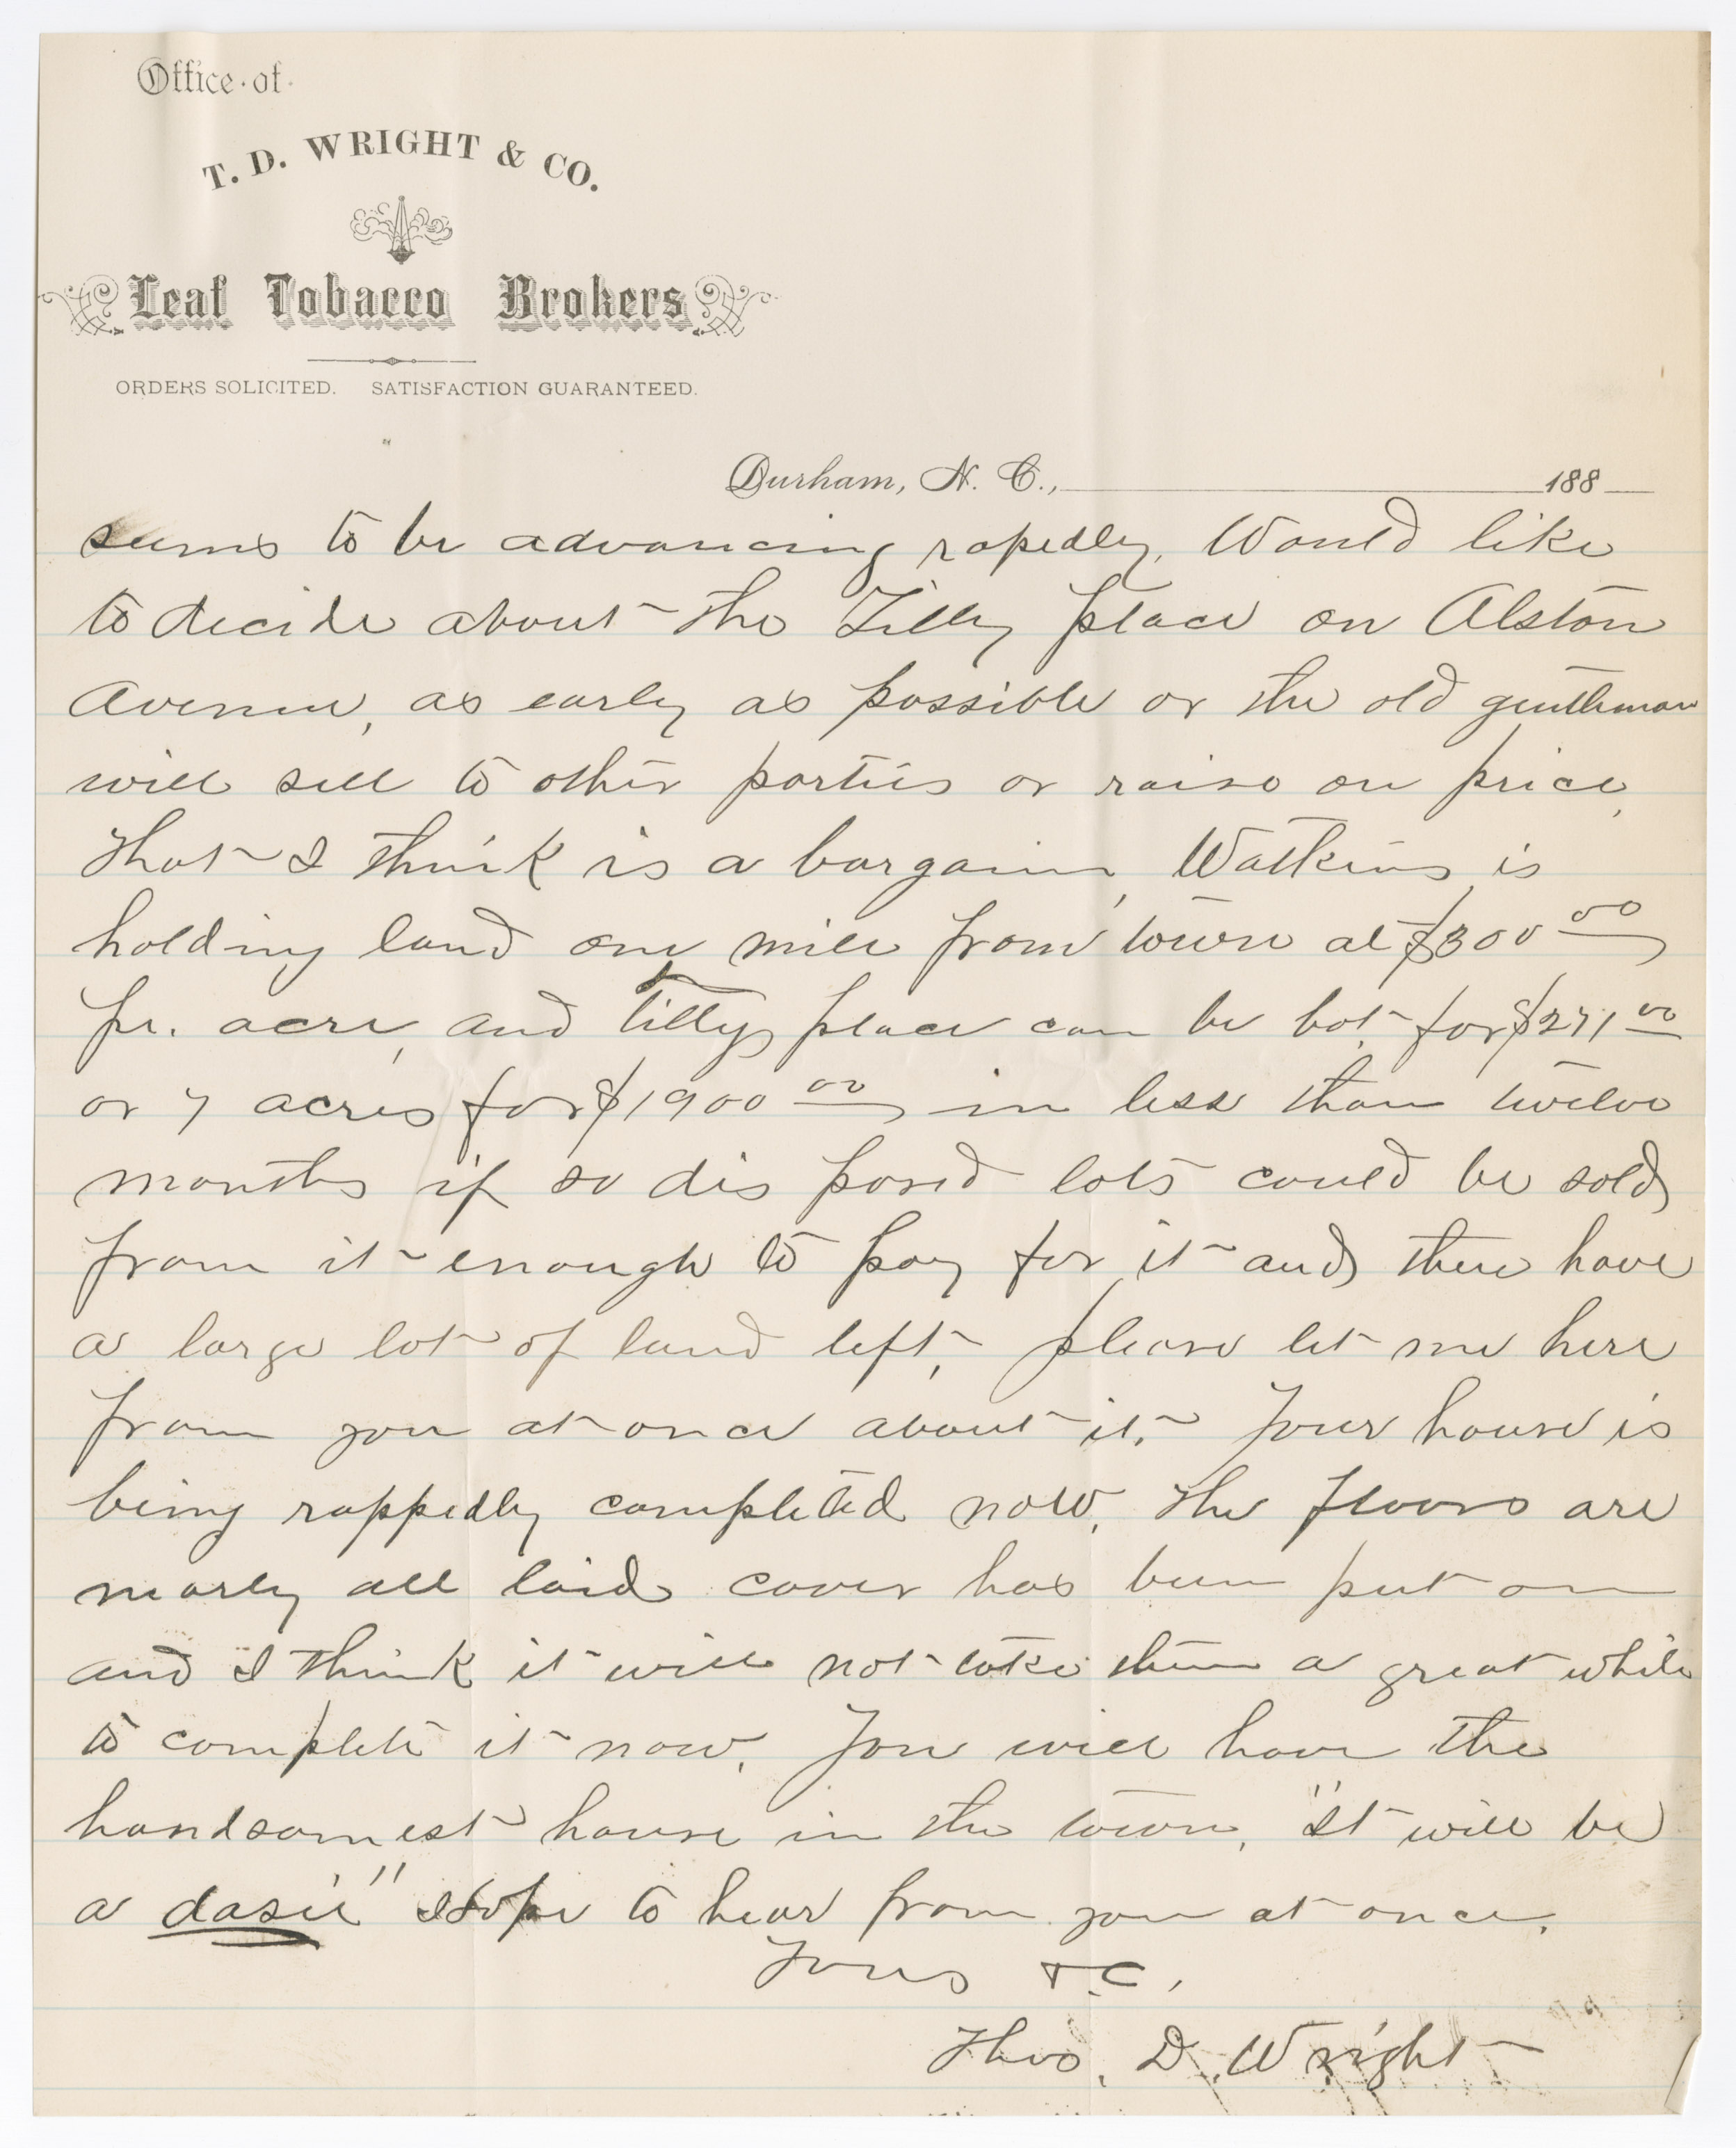 Office of
T. D. WRIGHT & CO.
Leaf Tobacco Brokers
ORDERS SOLICITED. SATISFACTION GUARANTEED.
Durham, N. C., 188
seems to be advancing rapedly. Would like
to decide about the Tilly place on Alston
Avenue, as early as possible or the old gentleman
will sell to other parties or raise on price,
that I think is a bargain, Watkins is
holding land one mile from town at $300 00
pr. acre, and Tillys place can be bot. for $271 00
or 7 acres for $1900 00 in less than twelve
months if so dis posed lots could be sold
from it enough to pay for it and then have
a large lot of land left, please let me here
from you at once about it. Your house is
being rappedly completed now, the floors are
nearly all laid cover has been put on
and I think it will not take them a great while
to complete it now, You will have the
handsomest house in the town, "it will be
a dasie" Hope to hear from you at once.
Yours &C,
Thos. D. Wright